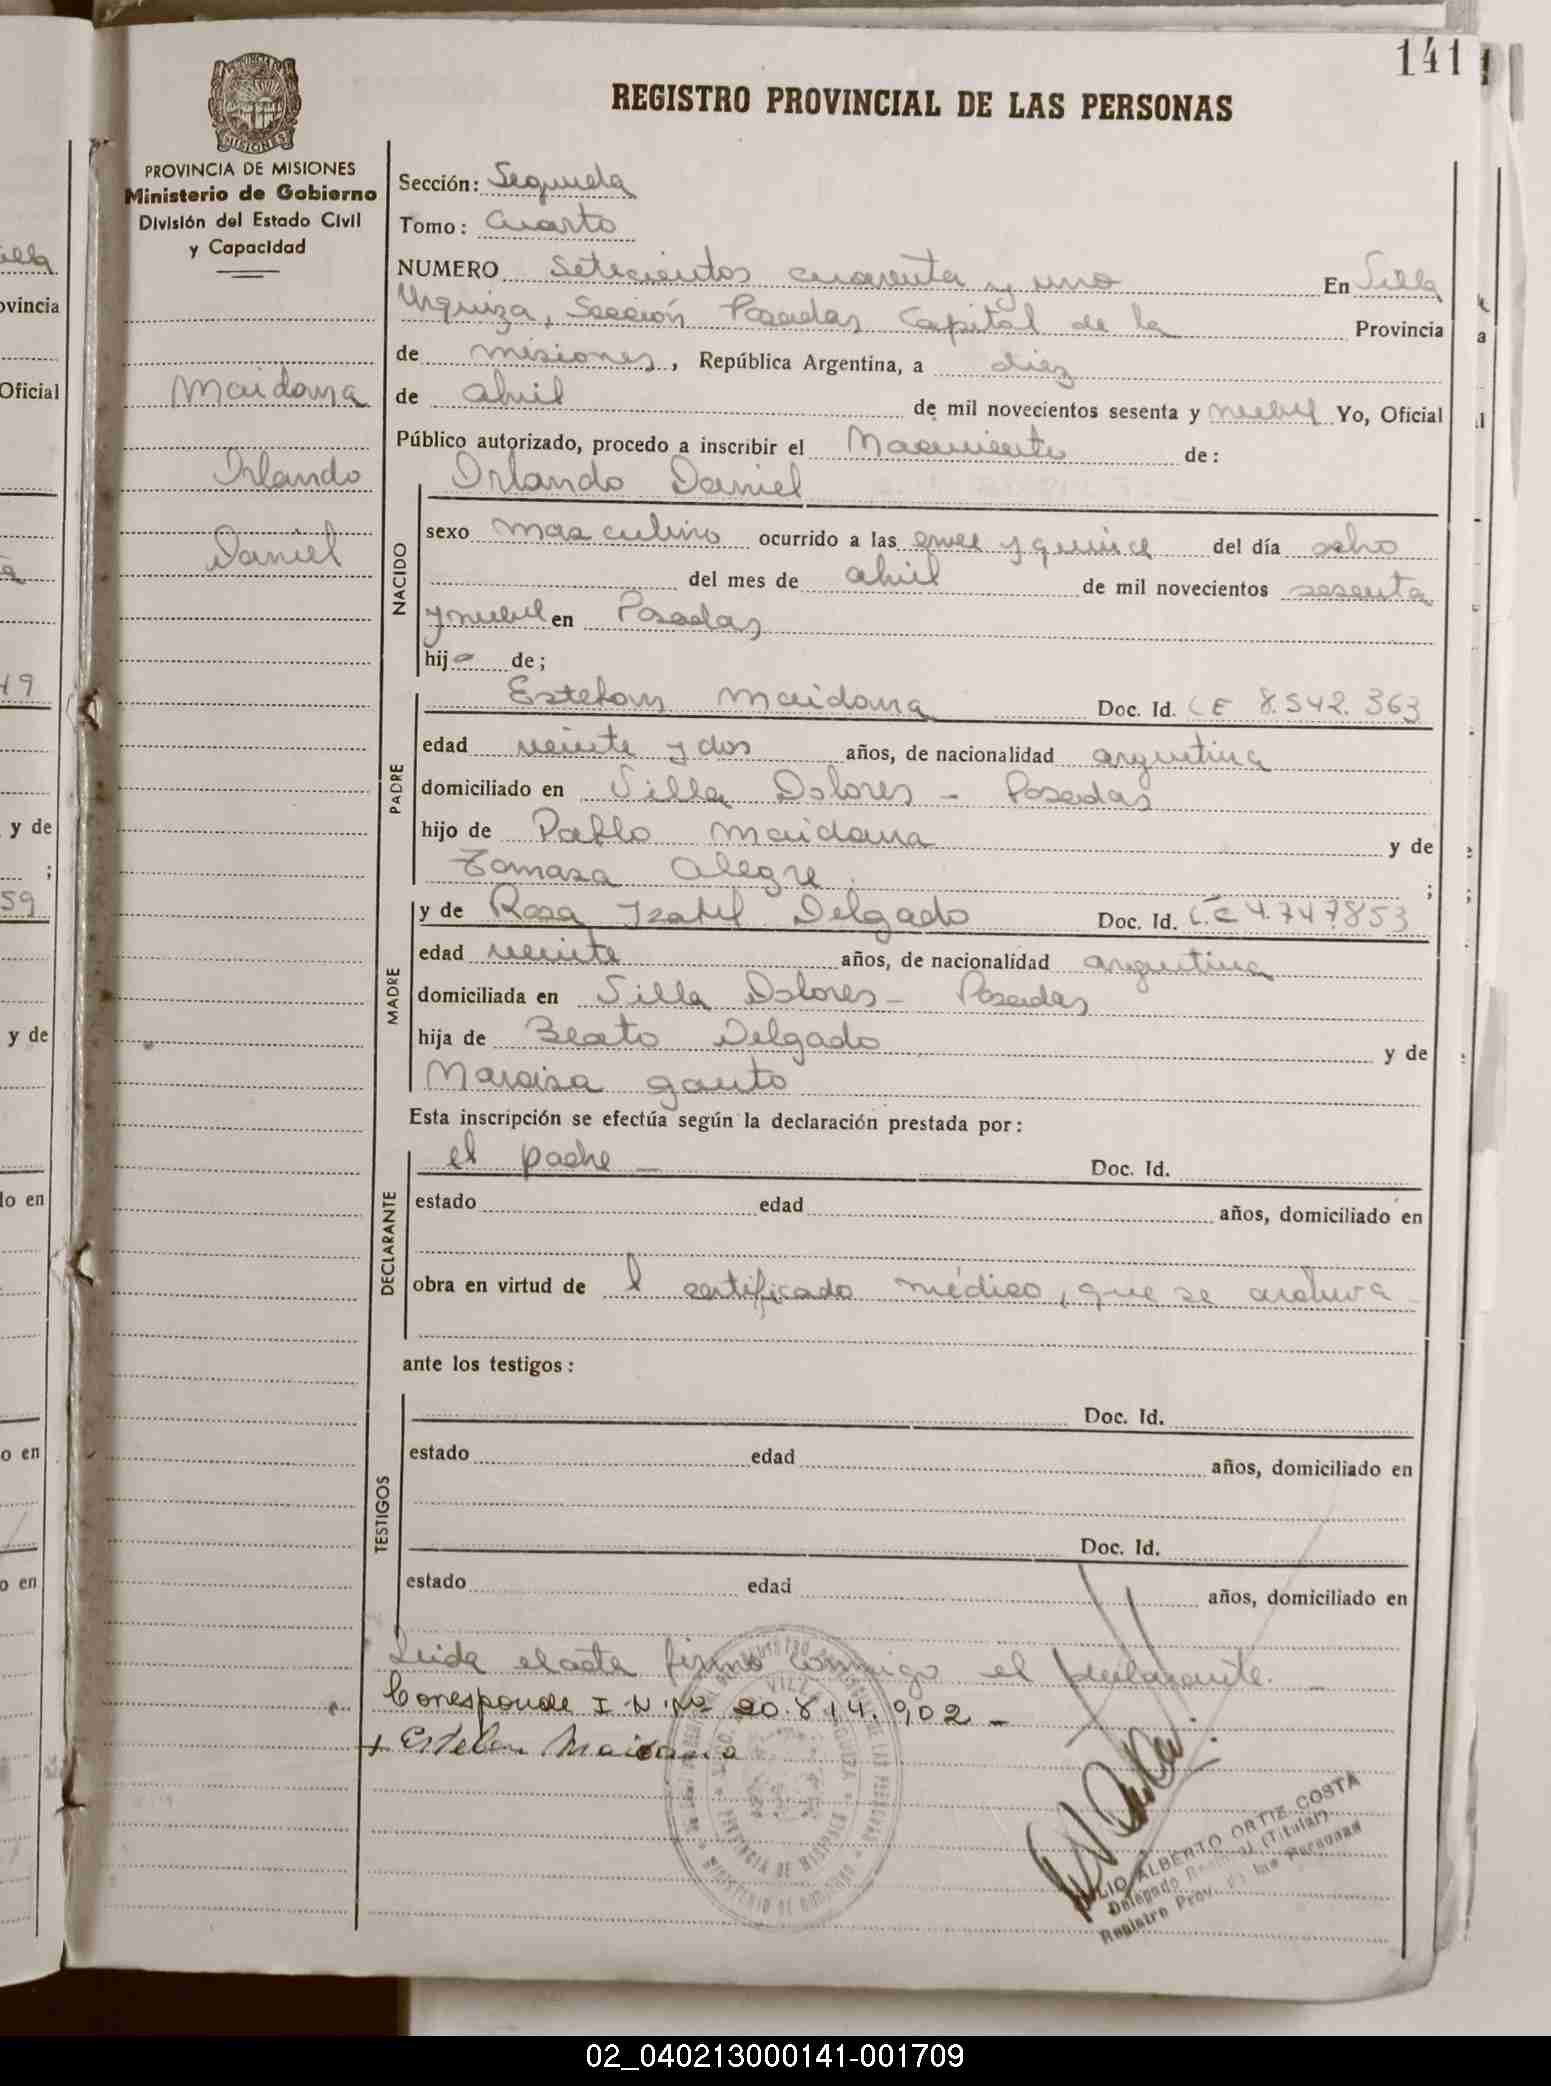 141
REGISTRO PROVINCIAL DE LAS PERSONAS
PROVINCIA DE MISIONES
Ministerio de Gobierno
División del Estado Civil
y Capacidad
Maidana
Orlando
Daniel
Sección: Segunda
Tomo: Cuarto
NUMERO Setecientos cuarenta y uno En Villa
Urquiza, Sección Posadas Capital de la Provincia
de misiones, República Argentina, a diez
de abril de mil novecientos sesenta y nueve Yo, Oficial
Público autorizado, procedo a inscribir el Nacimiento de:
NACIDO
Orlando Daniel
sexo masculino ocurrido a las once y quince del día ocho
del mes de abril de mil novecientos sesenta
y nueve en Posadas
hijo de;
PADRE
Esteban Maidana Doc. Id. CE 8.542.363
edad veinte y dos años, de nacionalidad argentina
domiciliado en Villa Dolores - Posadas
hijo de Pablo Maidana y de
Tomasa Alegre ;
MADRE
y de Rosa Yzabel Delgado Doc. Id. C.C 4.747.853
edad veinte años, de nacionalidad argentina
domiciliada en Villa Dolores - Posadas
hija de Beato Delgado y de
Narcisa Gauto
Esta inscripción se efectúa según la declaración prestada por:
DECLARANTE
el padre - Doc. Id.
estado edad años, domiciliado en
obra en virtud de l certificado médico, que se archiva
ante los testigos:
TESTIGOS
Doc. Id.
estado edad años, domiciliado en
Doc. Id.
estado edad años, domiciliado en
Leida el acta firmó conmigo el declarante. -
Corresponde I N. Nº 20.814.902 -
+ Esteban Maidana
VILLA URQUIZA
PROVINCIA DE MISIONES
MINISTERIO DE GOBIERNO
JULIO ALBERTO ORTIZ COSTA
Delegado (Titular)
Registro Prov. de las Personas
villa
ovincia
Oficial
49
y de
;
59
y de
lo en
o en
o en
02_040213000141-001709